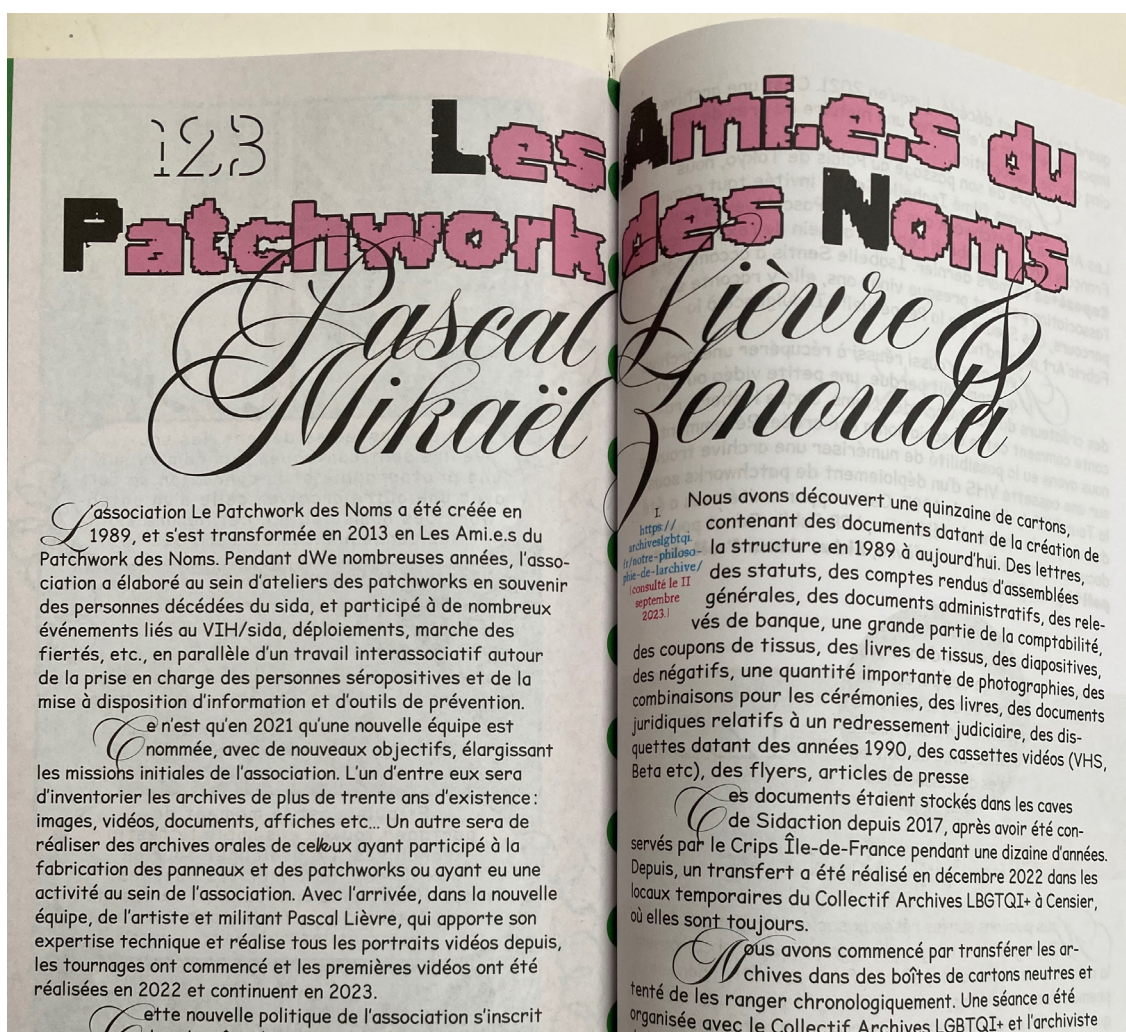 123
Les Ami.e.s du
Patchwork des Noms
Pascal Lièvre &
Mikaël Zenouda
L'association Le Patchwork des Noms a été créée en
1989, et s'est transformée en 2013 en Les Ami.e.s du
Patchwork des Noms. Pendant dWe nombreuses années, l'asso-
ciation a élaboré au sein d'ateliers des patchworks en souvenir
des personnes décédées du sida, et participé à de nombreux
événements liés au VIH/sida, déploiements, marche des
fiertés, etc., en parallèle d'un travail interassociatif autour
de la prise en charge des personnes séropositives et de la
mise à disposition d'information et d'outils de prévention.
Ce n'est qu'en 2021 qu'une nouvelle équipe est
nommée, avec de nouveaux objectifs, élargissant
les missions initiales de l'association. L'un d'entre eux sera
d'inventorier les archives de plus de trente ans d'existence :
images, vidéos, documents, affiches etc… Un autre sera de
réaliser des archives orales de ayant participé à la
fabrication des panneaux et des patchworks ou ayant eu une
activité au sein de l'association. Avec l'arrivée, dans la nouvelle
équipe, de l'artiste et militant Pascal Lièvre, qui apporte son
expertise technique et réalise tous les portraits vidéos depuis,
les tournages ont commencé et les premières vidéos ont été
réalisées en 2022 et continuent en 2023.
Cette nouvelle politique de l'association s'inscrit
1.
https://
archiveslgbtqi.
fr/notre-philoso-
phie-de-larchive/
[consulté le 11
septembre
2023.]
Nous avons découvert une quinzaine de cartons,
contenant des documents datant de la création de
la structure en 1989 à aujourd'hui. Des lettres,
des statuts, des comptes rendus d'assemblées
générales, des documents administratifs, des rele-
vés de banque, une grande partie de la comptabilité,
des coupons de tissus, des livres de tissus, des diapositives,
des négatifs, une quantité importante de photographies, des
combinaisons pour les cérémonies, des livres, des documents
juridiques relatifs à un redressement judiciaire, des dis-
quettes datant des années 1990, des cassettes vidéos (VHS,
Beta etc), des flyers, articles de presse
Ces documents étaient stockés dans les caves
de Sidaction depuis 2017, après avoir été con-
servés par le Crips Île-de-France pendant une dizaine d'années.
Depuis, un transfert a été réalisé en décembre 2022 dans les
locaux temporaires du Collectif Archives LBGTQI+ à Censier,
où elles sont toujours.
Nous avons commencé par transférer les ar-
chives dans des boîtes de cartons neutres et
tenté de les ranger chronologiquement. Une séance a été
organisée avec le Collectif Archives LGBTQI+ et l'archiviste